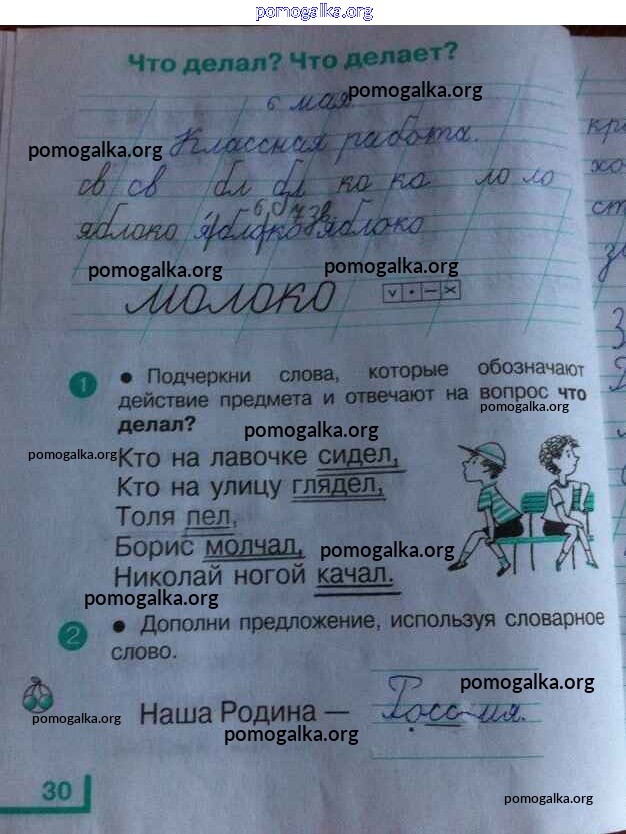 pomogalka.org
Что делал? Что делает?
6 мая.
pomogalka.org
Классная работа.
pomogalka.org
св св бл бл ко ко ло ло
яблоко яблоко яблоко
pomogalka.org pomogalka.org
молоко
1 • Подчеркни слова, которые обозначают
действие предмета и отвечают на вопрос что
pomogalka.org
делал?
pomogalka.org
pomogalka.org
Кто на лавочке сидел,
Кто на улицу глядел,
Толя пел,
Борис молчал,
pomogalka.org
Николай ногой качал.
pomogalka.org
2 • Дополни предложение, используя словарное
слово.
pomogalka.org
Наша Родина — Россия.
pomogalka.org
pomogalka.org
30
pomogalka.org